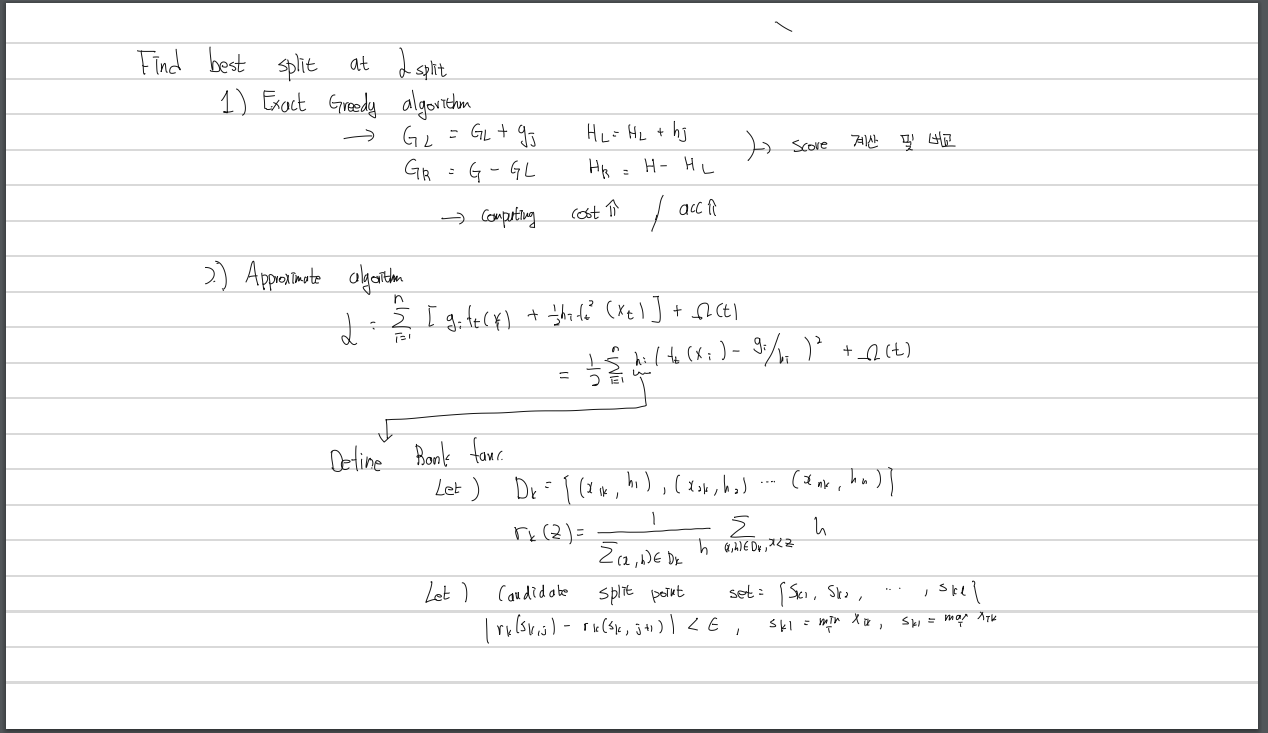 Find best split at L split
1) Exact Greedy algorithm
→ G_L = G_L + g_j   H_L = H_L + h_j   ) → Score 계산 및 비교
G_R = G - G_L   H_R = H - H_L
→ Computing cost ⇑ / acc ⇑
2) Approximate algorithm
L = Σ_{i=1}^{n} [ g_i f_t(x) + 1/2 h_i f_t^2 (x_t) ] + Ω(t)
= 1/2 Σ_{i=1}^{n} h_i ( f_t (x_i) - g_i/h_i )^2 + Ω(t)
Define Rank func.
Let ) D_k = [ (x_{1k}, h_1), (x_{2k}, h_2) ... (x_{nk}, h_n) ]
r_k (z) = 1 / Σ_{(x,h)∈D_k} h  Σ_{(x,h)∈D_k, x<z} h
Let ) Candidate split point set = { S_{k1}, S_{k2}, ..., S_{kl} }
| r_k(s_{k,j}) - r_k(s_{k, j+1}) | < ε , s_{k1} = min_i x_{ik}, s_{kl} = max_i x_{ik}